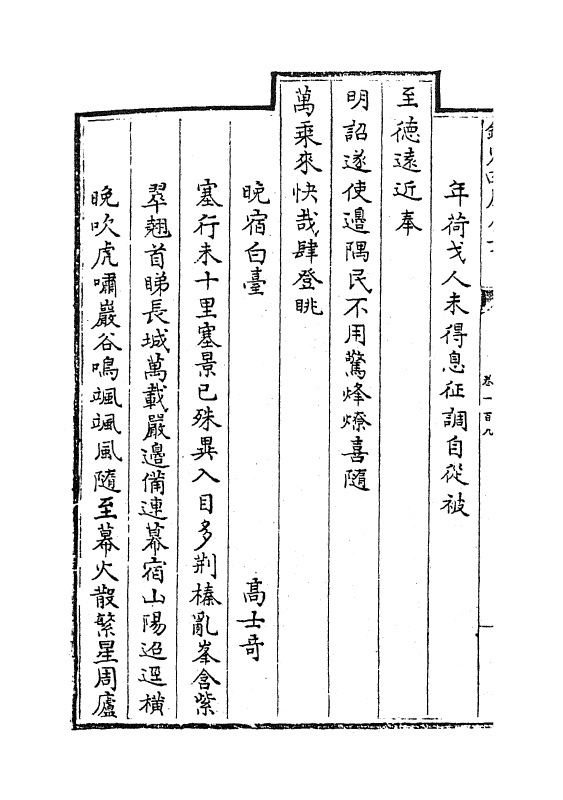 卷一百九
年荷戈人未得息征調自從被
至德遠近奉
明詔遂使邊隅民不用驚烽燎喜隨
萬乘來快哉肆登眺
晚宿白臺　　　　　高士奇
塞行未十里塞景已殊異入目多荆榛亂峯含紫
翠翹首睇長城萬載嚴邊備連幕宿山陽迢遥橫
晚吹虎嘯巖谷鳴颯颯風隨至幕火散繁星周廬